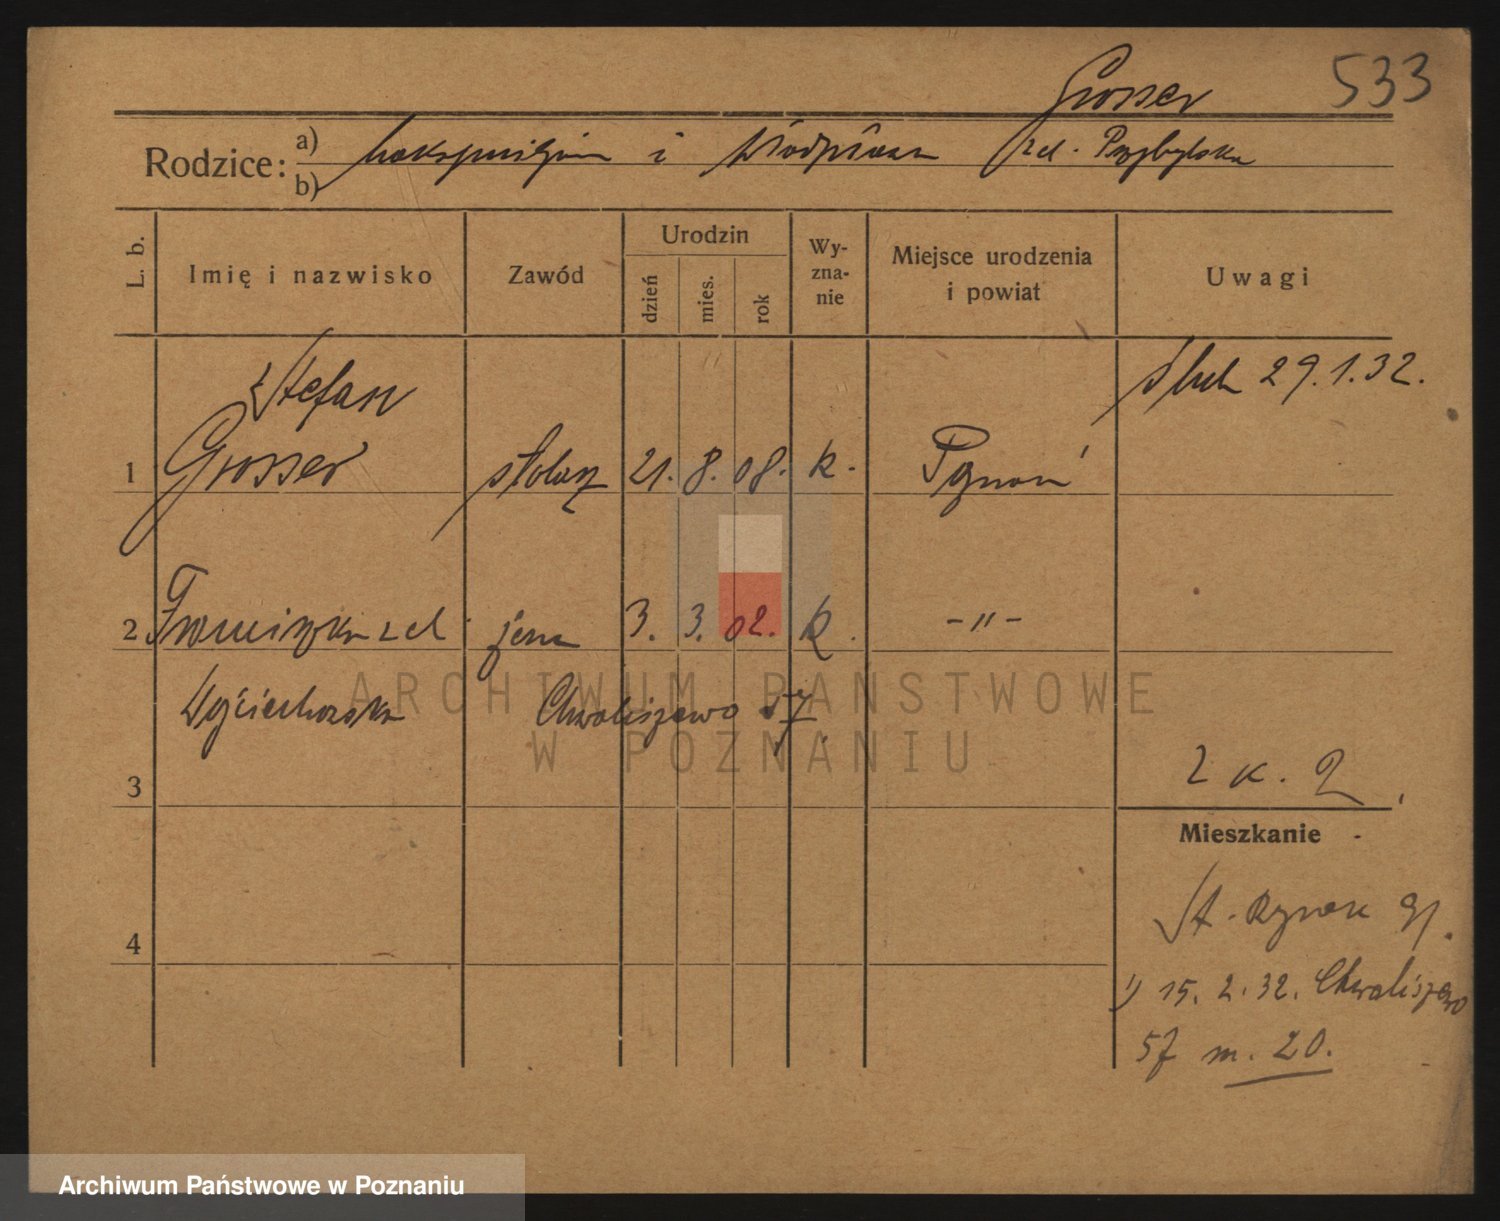 Grosser 533
Rodzice: a) Maksymiljan i Władysława zd. Przybylska
b)
L. b. Imię i nazwisko Zawód Urodzin dzień mies. rok Wy-zna-nie Miejsce urodzenia i powiat Uwagi
Stefan ślub 29.1.32.
1 Grosser stolarz 21. 8. 08. k. Poznań
2 Franciszka zd żona 3. 3. 02. k. -"-
Wojciechowska Chwaliszewo 57
ARCHIWUM PAŃSTWOWE
W POZNANIU
3 2 k.
Mieszkanie
St. Rynek 91.
4
1) 15. 2. 32. Chwaliszewo
57 m. 20.
Archiwum Państwowe w Poznaniu